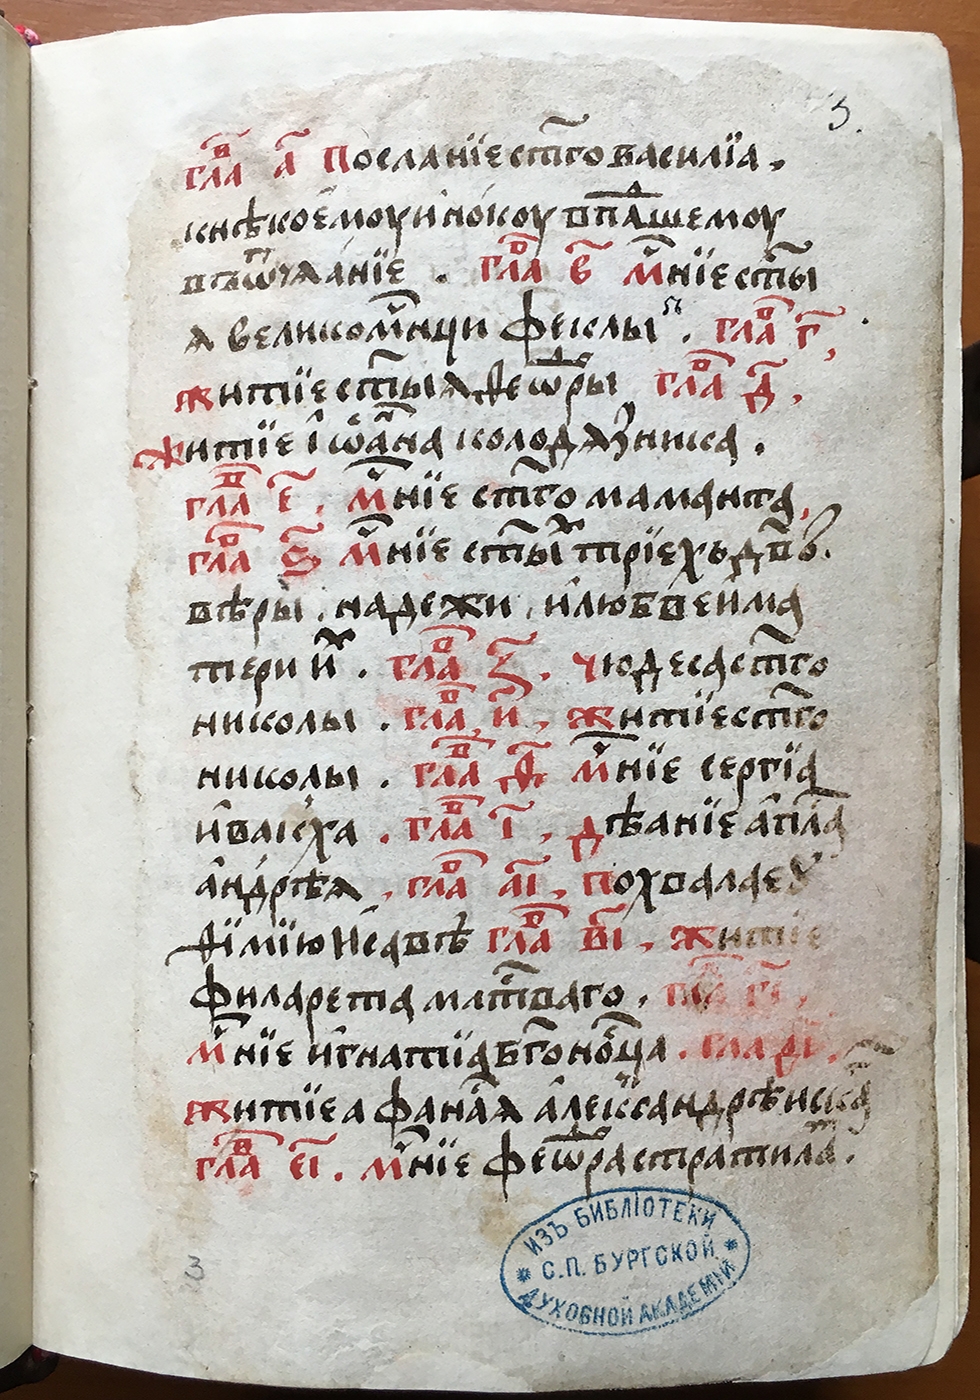 3.
гла҃в а҃ Посланїе ст҃го василїа,
кнѣкоемоу и҆нокоу впа́дшемоу
въ ѿчаанїе . гла҃в в҃ Мч҃нїе ст҃ы
ѧ великомч҃нци феклы . гла҃в г҃,
житїе ст҃ыѧ ѳеѡдоры гла҃в д҃,
житїе і҆ѡа҆нна колодѧзника .
гла҃в е҃ . мч҃нїе ст҃го маманта,
гла҃в ѕ҃ мч҃нїе ст҃ых трїехъ дв҃въ.
вѣры , надежи , и҆ любве и҆ ма
тери и҆х . гла҃в з҃ . чюдеса ст҃го
николы . гла҃в и҃ , житїе ст҃го
николы . гла҃в ѳ҃ мч҃нїе сергїа
и҆ вакха . гла҃в і҃ . дѣанїе а҆пл҃а
а҆ндрѣѧ , гла҃в а҃і , похвала е҆
гла҃в в҃і , житїе
филарета млс҃тиваго . гла҃в г҃і ,
мч҃нїе и҆гнатїа бг҃оносца . гла҃в д҃і .
житїе афанаⷭ҇ѧ а҆леѯандрѣнска
гла҃в е҃і . мч҃нїе феѡдора стратила .
ИЗЪ БИБЛІОТЕКИ
С.П. БУРГСКОЙ
ДУХОВНОЙ АКАДЕМІИ
3